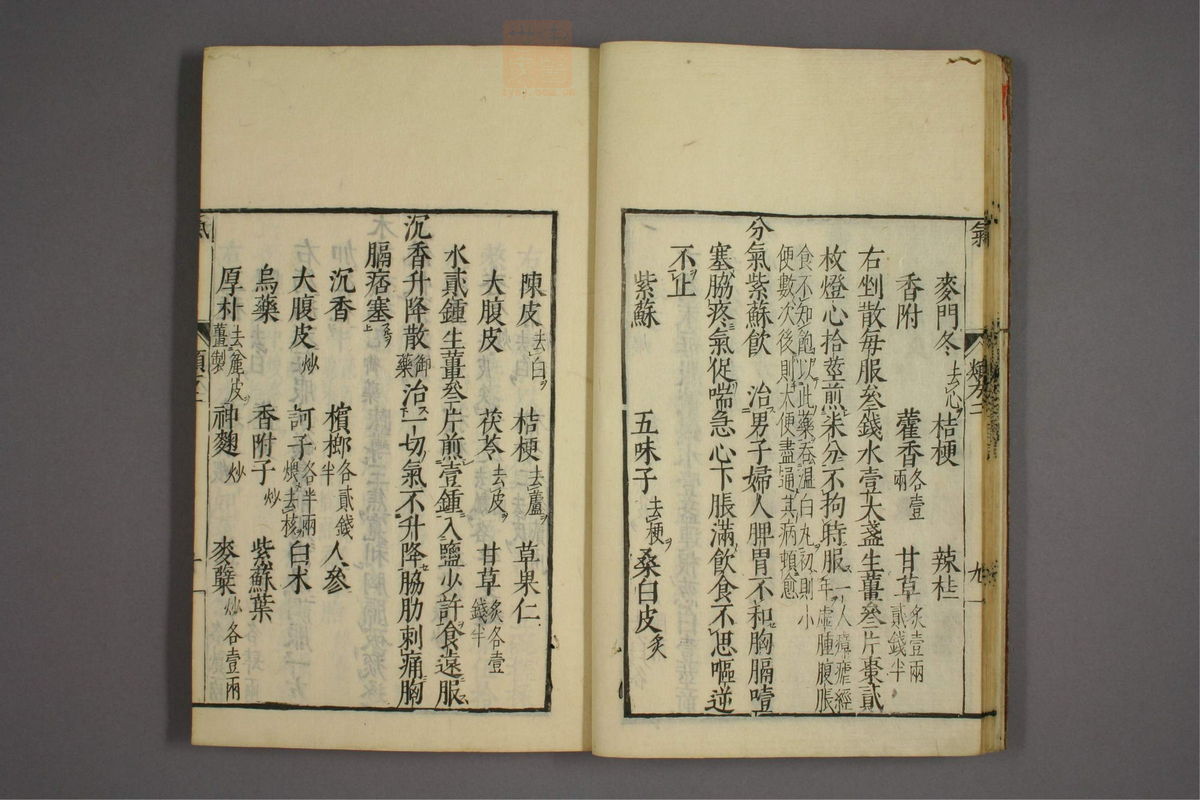 麥門冬去心 桔梗 辣桂
香附 藿香各壹兩 甘草炙壹兩貳錢半
右剉散每服叄錢水壹大盞生薑叄片棗貳
枚燈心拾莖煎柒分不拘時服一人瘴瘧經年虛腫腹脹
食不知飽以此藥吞溫白丸初則小
便數次後則大便盡通其病頓愈
分氣紫蘇飲 治男子婦人脾胃不和胸膈噎
塞脇疼氣促喘急心下脹滿飲食不思嘔逆
不止
紫蘇 五味子去梗 桑白皮炙
陳皮去白 桔梗去蘆 草果仁
大腹皮 茯苓去皮 甘草炙各壹錢半
水貳鍾生薑叄片煎壹鍾入鹽少許食遠服
沉香升降散御藥 治一切氣不升降脇肋刺痛胸
膈痞塞
沉香 檳榔各貳錢半 人參
大腹皮炒 訶子各半兩煨去核 白朮
烏藥 香附子炒 紫蘇葉
厚朴去麄皮薑製 神麯炒 麥糵炒各壹兩